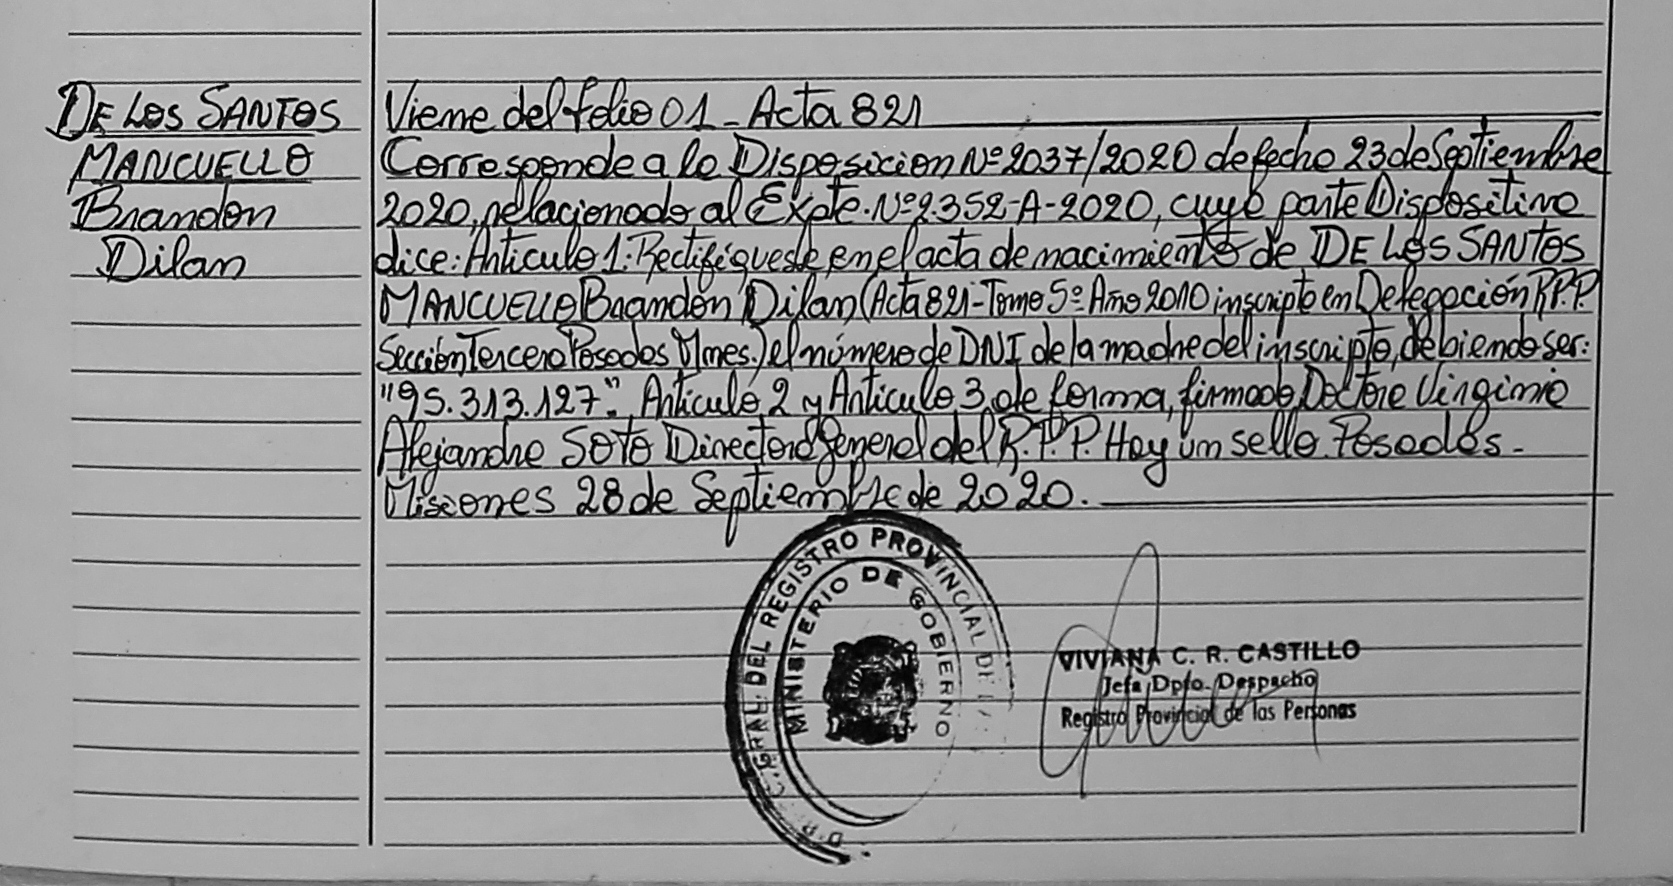 DE LOS SANTOS
MANCUELLO
Brandon
Dilan
Viene del folio 01 - Acta 821
Corresponde a la Disposicion Nº 2037/2020 de fecha 23 de Septiembre
2020, relacionado al Expte. Nº 2.352-A-2020, cuya parte Dispositiva
dice: Articulo 1: Rectifíquese en el acta de nacimiento de DE LOS SANTOS
MANCUELLO Brandon Dilan (Acta 821 - Tomo 5º Año 2010 inscripto en Delegación R.P.P.
Sección Tercera Posadas Mnes.) el número de DNI de la madre del inscripto, debiendo ser:
"95.313.127". Articulo 2 y Articulo 3 de forma, firmado Doctora Virginia
Alejandra Soto Directora General del R.P.P. Hay un sello. Posadas -
Misiones 28 de Septiembre de 2020.
GRAL. DEL REGISTRO PROVINCIAL DE
MINISTERIO DE GOBIERNO
VIVIANA C. R. CASTILLO
Jefa Dpto. Despacho
Registro Provincial de las Personas